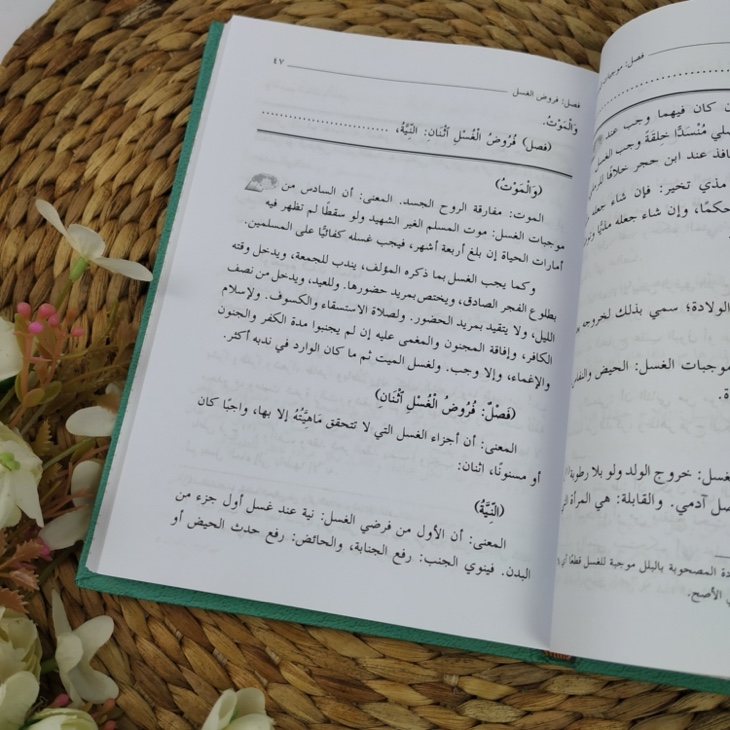 فصل: موجبات
ن كان فيهما وجب عند
صلي مُنْسَدًّا خِلقَةً وجب الغسل
نافذ عند ابن حجر خلافًا للرملي
مذي تخير: فإن شاء جعله
حكمًا، وإن شاء جعله مذيًا
الولادة؛ سمي بذلك لخروجه
موجبات الغسل: الحيض والنفاس
ة.
غسل: خروج الولد ولو بلا رطوبة
صل آدمي. والقابلة: هي المرأة
دة المصحوبة بالبلل موجبة للغسل قطعًا
ي الأصح.
فصل: فروض الغسل ٤٧
وَالْمَوْتُ.
(فصل) فُرُوضُ الْغُسْلِ اثْنَانِ: النِّيَّةُ، ....................
(وَالْمَوْتُ)
الموت: مفارقة الروح الجسد. المعنى: أن السادس من
موجبات الغسل: موت المسلم الغير الشهيد ولو سقطًا لم تظهر فيه
أمارات الحياة إن بلغ أربعة أشهر، فيجب غسله كفائيًّا على المسلمين.
وكما يجب الغسل بما ذكره المؤلف، يندب للجمعة، ويدخل وقته
بطلوع الفجر الصادق، ويختص بمريد حضورها. وللعيد، ويدخل من نصف
الليل، ولا يتقيد بمريد الحضور. ولصلاة الاستسقاء والكسوف. ولإسلام
الكافر، وإفاقة المجنون والمغمى عليه إن لم يجنبوا مدة الكفر والجنون
والإغماء، وإلا وجب. ولغسل الميت ثم ما كان الوارد في ندبه أكثر.
(فَصْلٌ: فُرُوضُ الْغُسْلِ اثْنَانِ)
المعنى: أن أجزاء الغسل التي لا تتحقق مَاهِيَّتُهُ إلا بها، واجبًا كان
أو مسنونًا، اثنان:
(النِّيَّةُ)
المعنى: أن الأول من فرضي الغسل: نية عند غسل أول جزء من
البدن. فينوي الجنب: رفع الجنابة، والحائض: رفع حدث الحيض أو